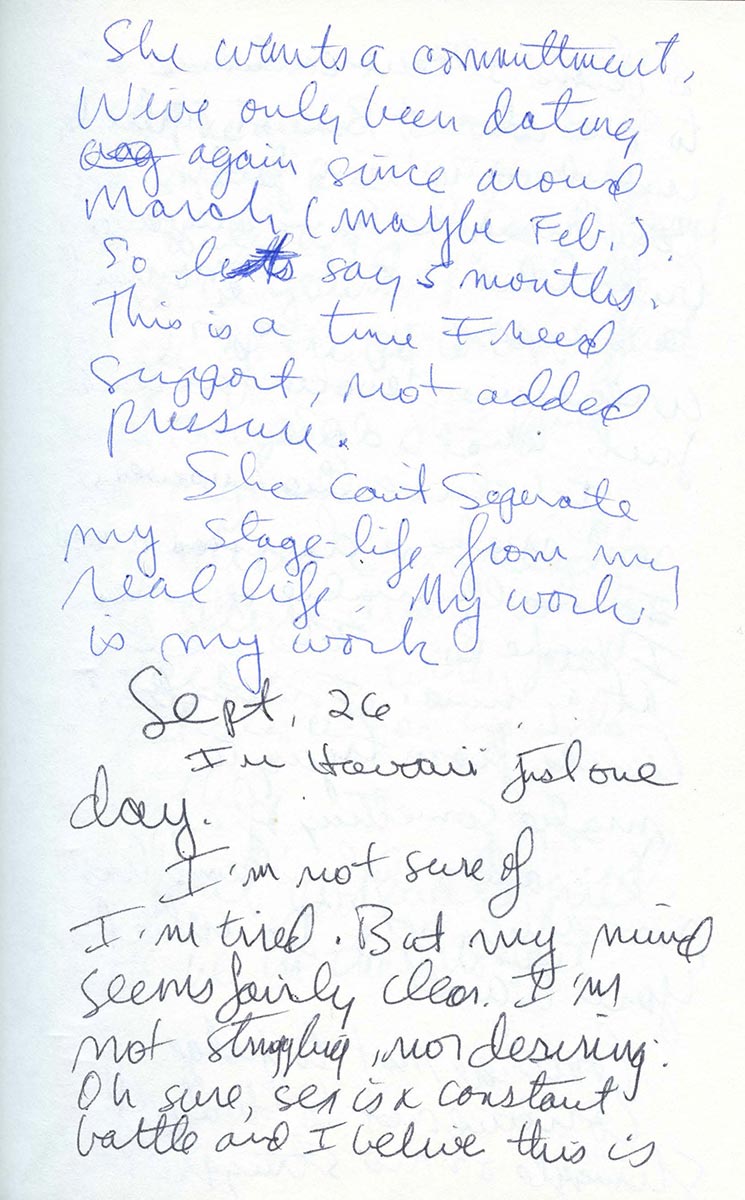 She wants a committment.
We've only been dating
again since around
March (maybe Feb.).
So lets say 5 months.
This is a time I need
support, not added
pressure.
She can't Seperate
my stage-life from my
real life. My work
is my work
Sept. 26
In Hawaii just one
day.
I'm not sure of
I'm tired. But my mind
seems fairly clear. I'm
not struggling, nor desiring.
Oh sure, sex is a constant
battle and I belive this is